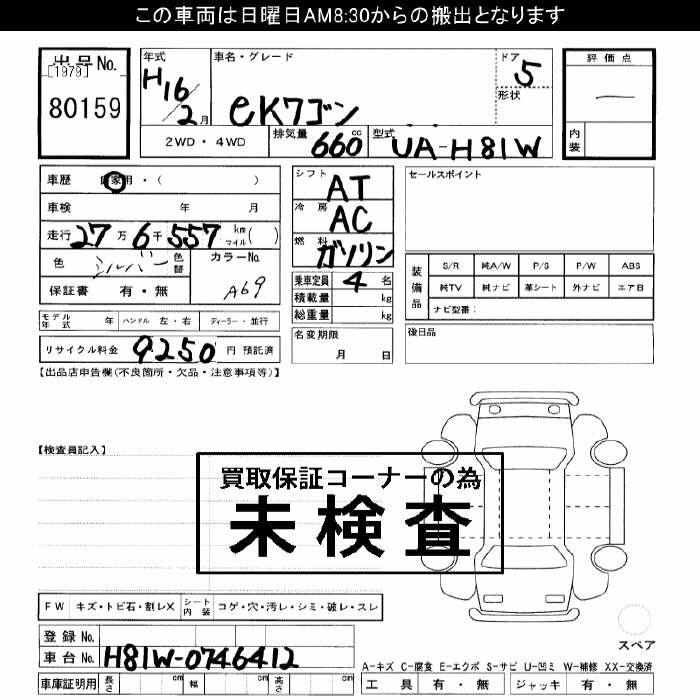 この車両は日曜日AM8:30からの搬出となります
出品No.
[1979]
80159
年式
H16/2月
車名・グレード
eKワゴン
ドア
5
形状
評価点
―
2WD・4WD
排気量
660cc
型式
UA-H81W
内装
車歴 自家用・( )
車検 年 月
走行 27万6千557 km マイル( )
色 シルバー 色替
カラーNo.
A69
保証書 有・無
シフト AT
冷房 AC
燃料 ガソリン
乗車定員 4 名
積載量 kg
総重量 kg
セールスポイント
装備品
S/R 純A/W P/S P/W ABS
純TV 純ナビ 革シート 外ナビ エアB
ナビ型番:
モデル年式 年 ハンドル 左・右 ディーラー・並行
リサイクル料金 9250 円 預託済
名変期限
月 日
後日品
【出品店申告欄(不良箇所・欠品・注意事項等)】
【検査員記入】
買取保証コーナーの為
未検査
FW キズ・トビ石・割レX シート内装 コゲ・穴・汚レ・シミ・破レ・スレ
登録No.
車台No. H81W-0746412
車庫証明用 長さ cm 幅 cm 高さ cm
スペア
A-キズ C-腐食 E-エクボ S-サビ U-凹ミ W-補修 XX-交換済
工具 有・無 ジャッキ 有・無